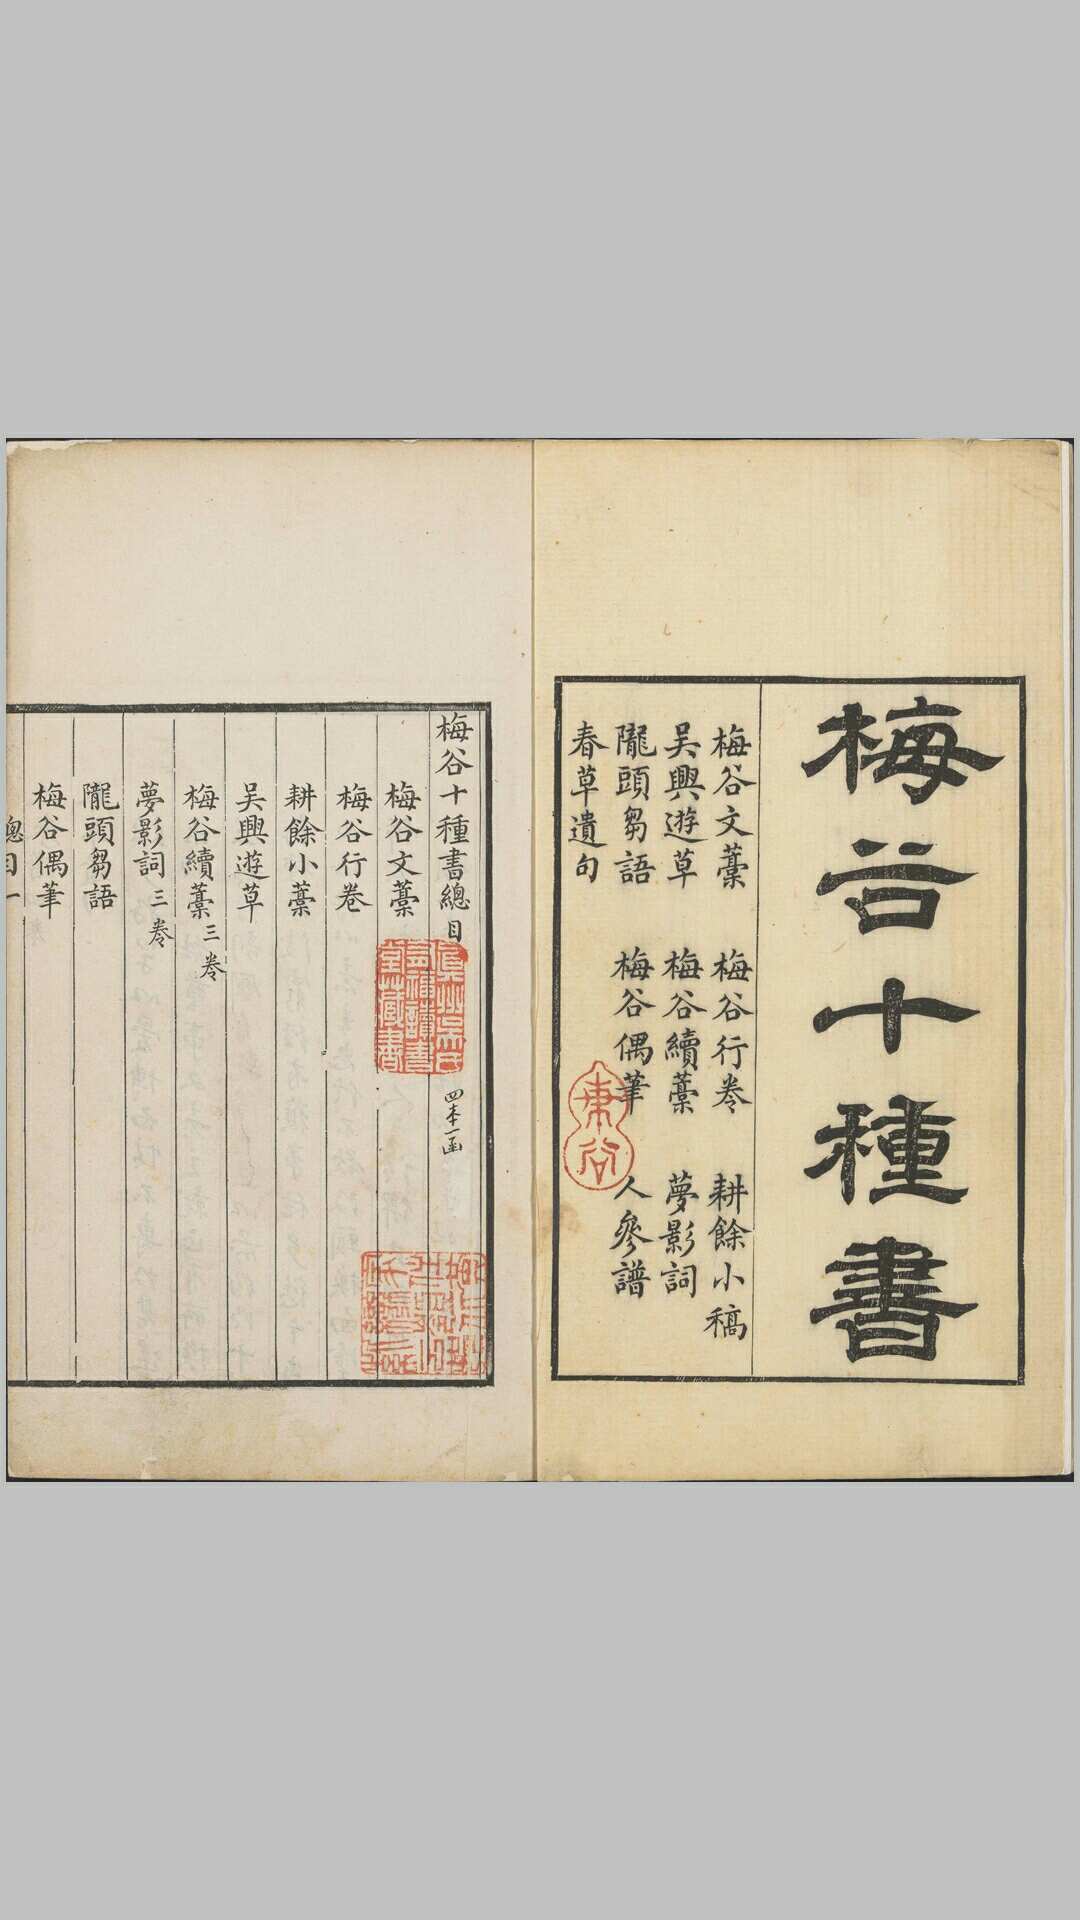 梅谷十種書
梅谷文藳 梅谷行卷 耕餘小稿
吴興遊草 梅谷續藳 夢影詞
隴頭芻語 梅谷偶筆 人參譜
春草遺句
東谷
梅谷十種書總目
四本一函
梅谷文藳
梅谷行卷
耕餘小藳
吴興遊草
梅谷續藳三卷
夢影詞三卷
隴頭芻語
梅谷偶筆
總目一